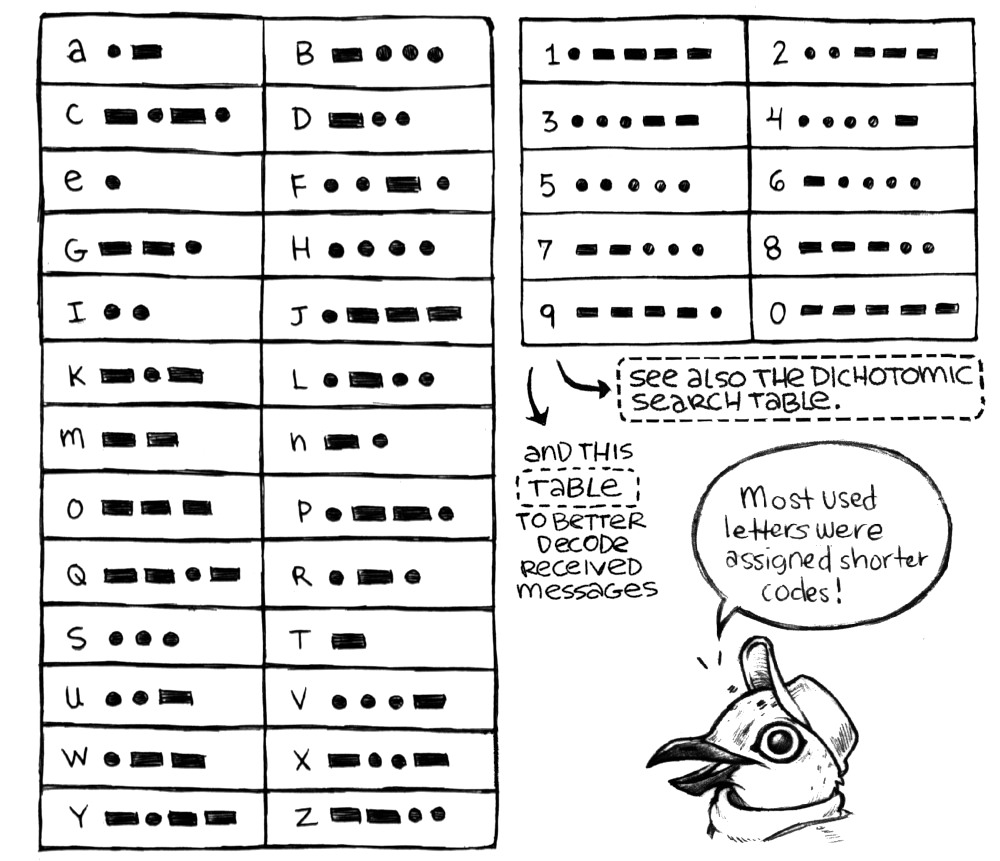 a •− B −•••
C −•−• D −••
e • F ••−•
G −−• H ••••
I •• J •−−−
K −•− L •−••
m −− n −•
O −−− P •−−•
Q −−•− R •−•
S ••• T −
U ••− V •••−
W •−− X −••−
Y −•−− Z −−••
1 •−−−− 2 ••−−−
3 •••−− 4 ••••−
5 ••••• 6 −••••
7 −−••• 8 −−−••
9 −−−−• 0 −−−−−
see also THE DICHOTOMIC
search Table.
and THIS
Table
TO Better
Decode
received
messages
Most used
letters were
assigned shorter
codes!